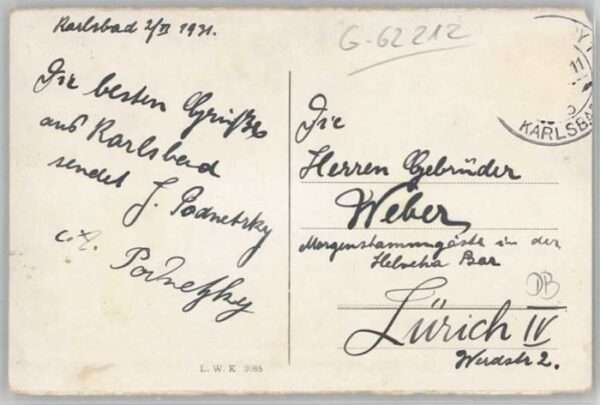 Karlsbad 2/VI 1931.
G-62212
Die besten Grüße
aus Karlsbad
sendet J. Podnetzky
Podnetzky
Die
Herren Gebrüder
Weber
Morgenstammgäste in der
Helvetia Bar
DB
Zürich IV
Werdstr 2.
L. W. K
11
KARLSBA